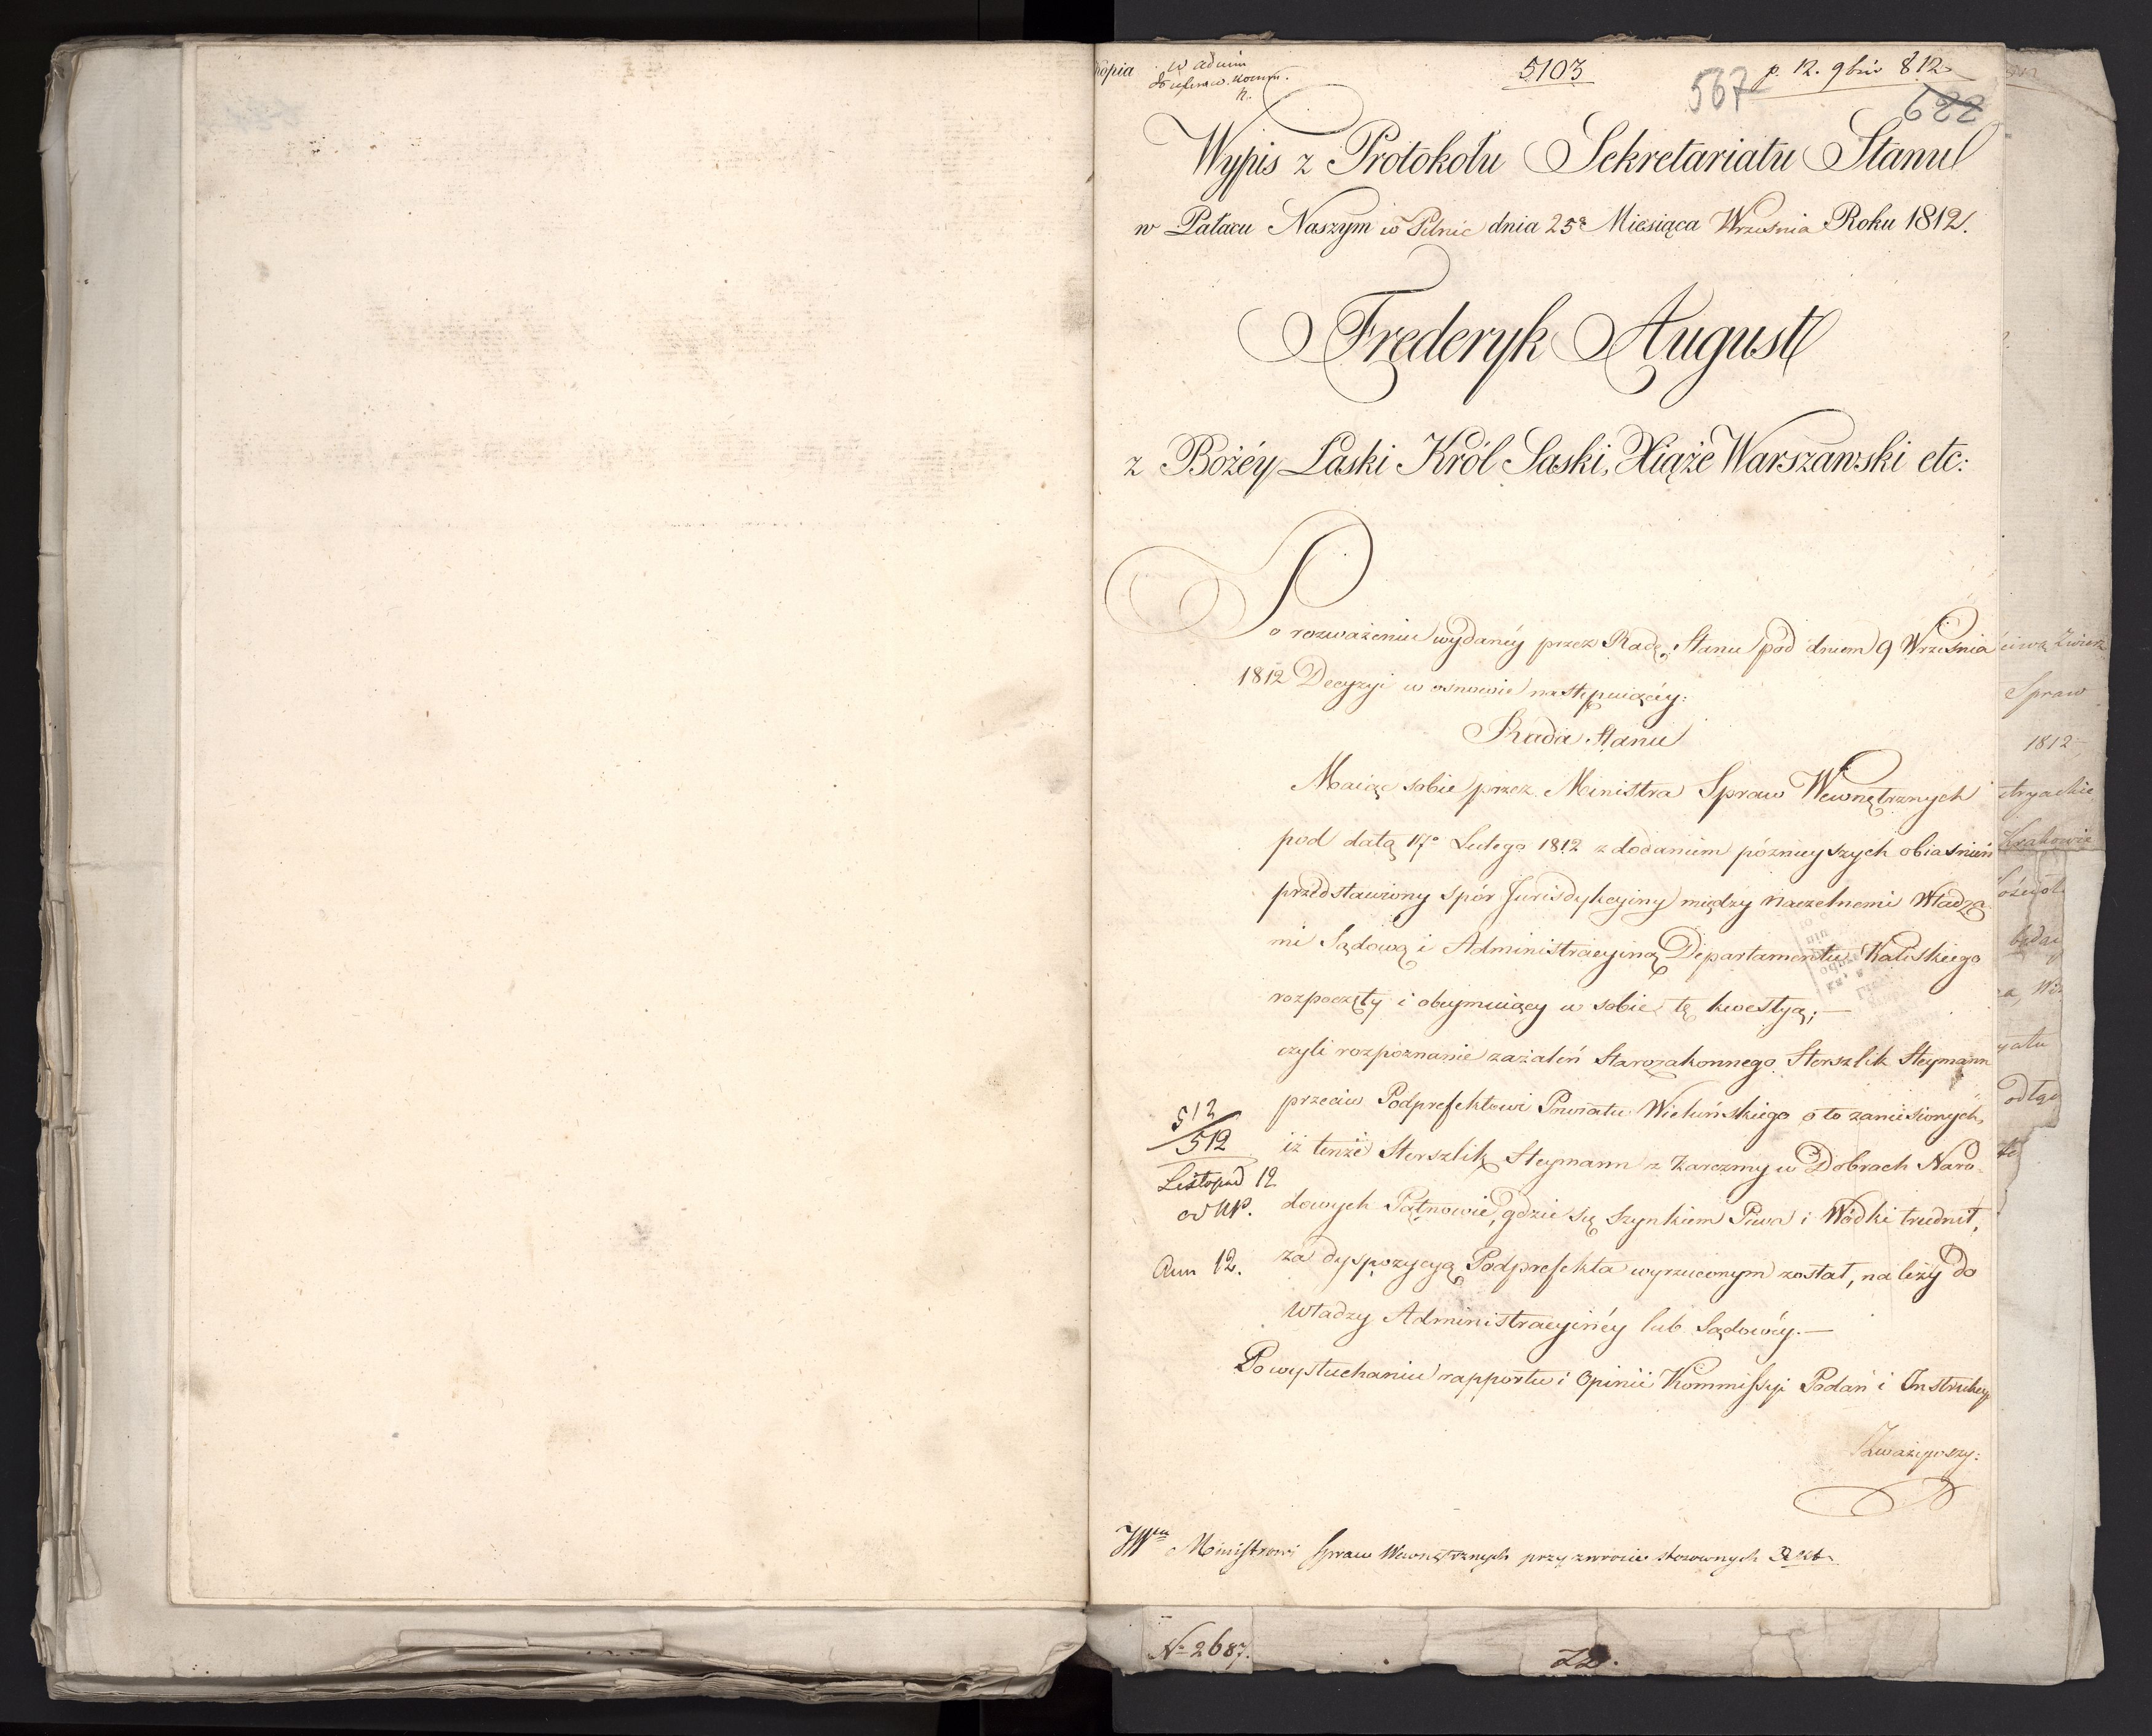 Kopia
w admin
5103
p. 12. 9bra 812
567
622
Wypis z Protokołu Sekretariatu Stanu
w Pałacu Naszym w Pilnic dnia 25º Miesiąca Września Roku 1812.
Frederyk August
z Bożéy Łaski Król Saski, Xiąże Warszawski etc:
Po rozważeniu wydanéy przez Radę Stanu pod dniem 9 Września
1812 Decyzyi w osnowie następuiącéy:
Rada Stanu
Maiąc sobie przez Ministra Spraw Wewnętrznych
pod datą 17º Lutego 1812 z dodaniem póznieyszych obiasnień
przedstawiony spór Jurisdykcyiny między naczelnemi Władza-
mi Sądową i Administracyiną Departamentu Kaliskiego
rozpoczęty i obeymuiący w sobie tę kwestyą; —
czyli rozpoznanie zażaleń Starozakonnego Sterszlik Steymann
przeciw Podprefektowi Powiatu Wieluńskiego o to zaniesionych,
iż tenże Sterszlik Steymann z karczmy w Dobrach Naro-
dowych Pątnowie, gdzie się szynkiem Piwa i Wódki trudnił,
za dyspozycyą Podprefekta wyrzuconym został, należy do
Władzy Administracyinéy lub Sądowéy. —
Po wysłuchaniu rapportu i Opinii Kommissyi Podań i Instrukcyi
Zważywszy:
512
512
Listopad 12
od
Ann 12.
JWmu Ministrowi Spraw Wewnętrznych przy zwrocie stosownych
No 2687.